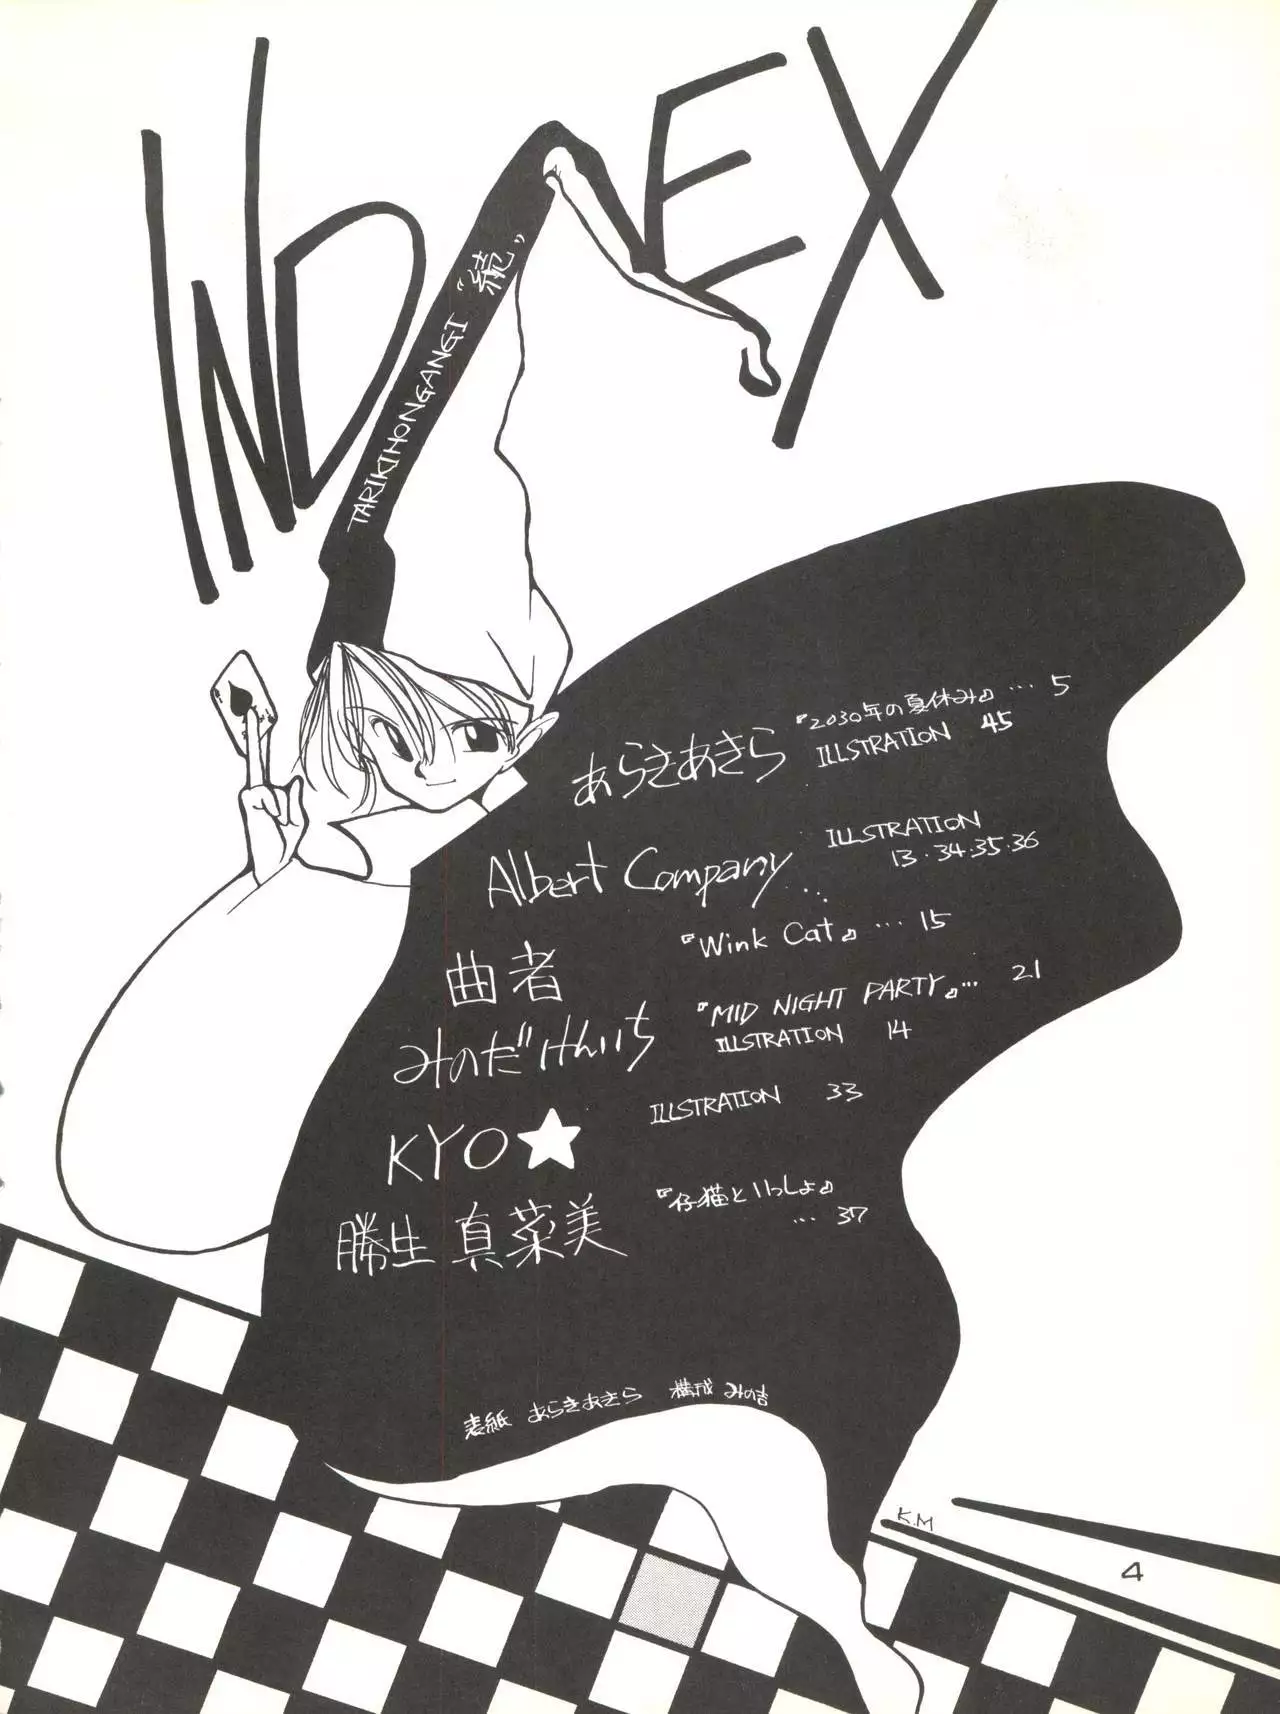 INDEX
TARIKIHONGANGI “続”
あらきあきら
『2030年の夏休み』… 5
ILLSTRATION 45
Albert Company
ILLSTRATION
13・34・35・36
曲者
『Wink Cat』… 15
みのだけんいち
『MID NIGHT PARTY』… 21
ILLSTRATION 14
KYO★
ILLSTRATION 33
勝生 真菜美
『仔猫といっしょ』
… 37
表紙 あらきあきら 構成 みの吉
K.M
4